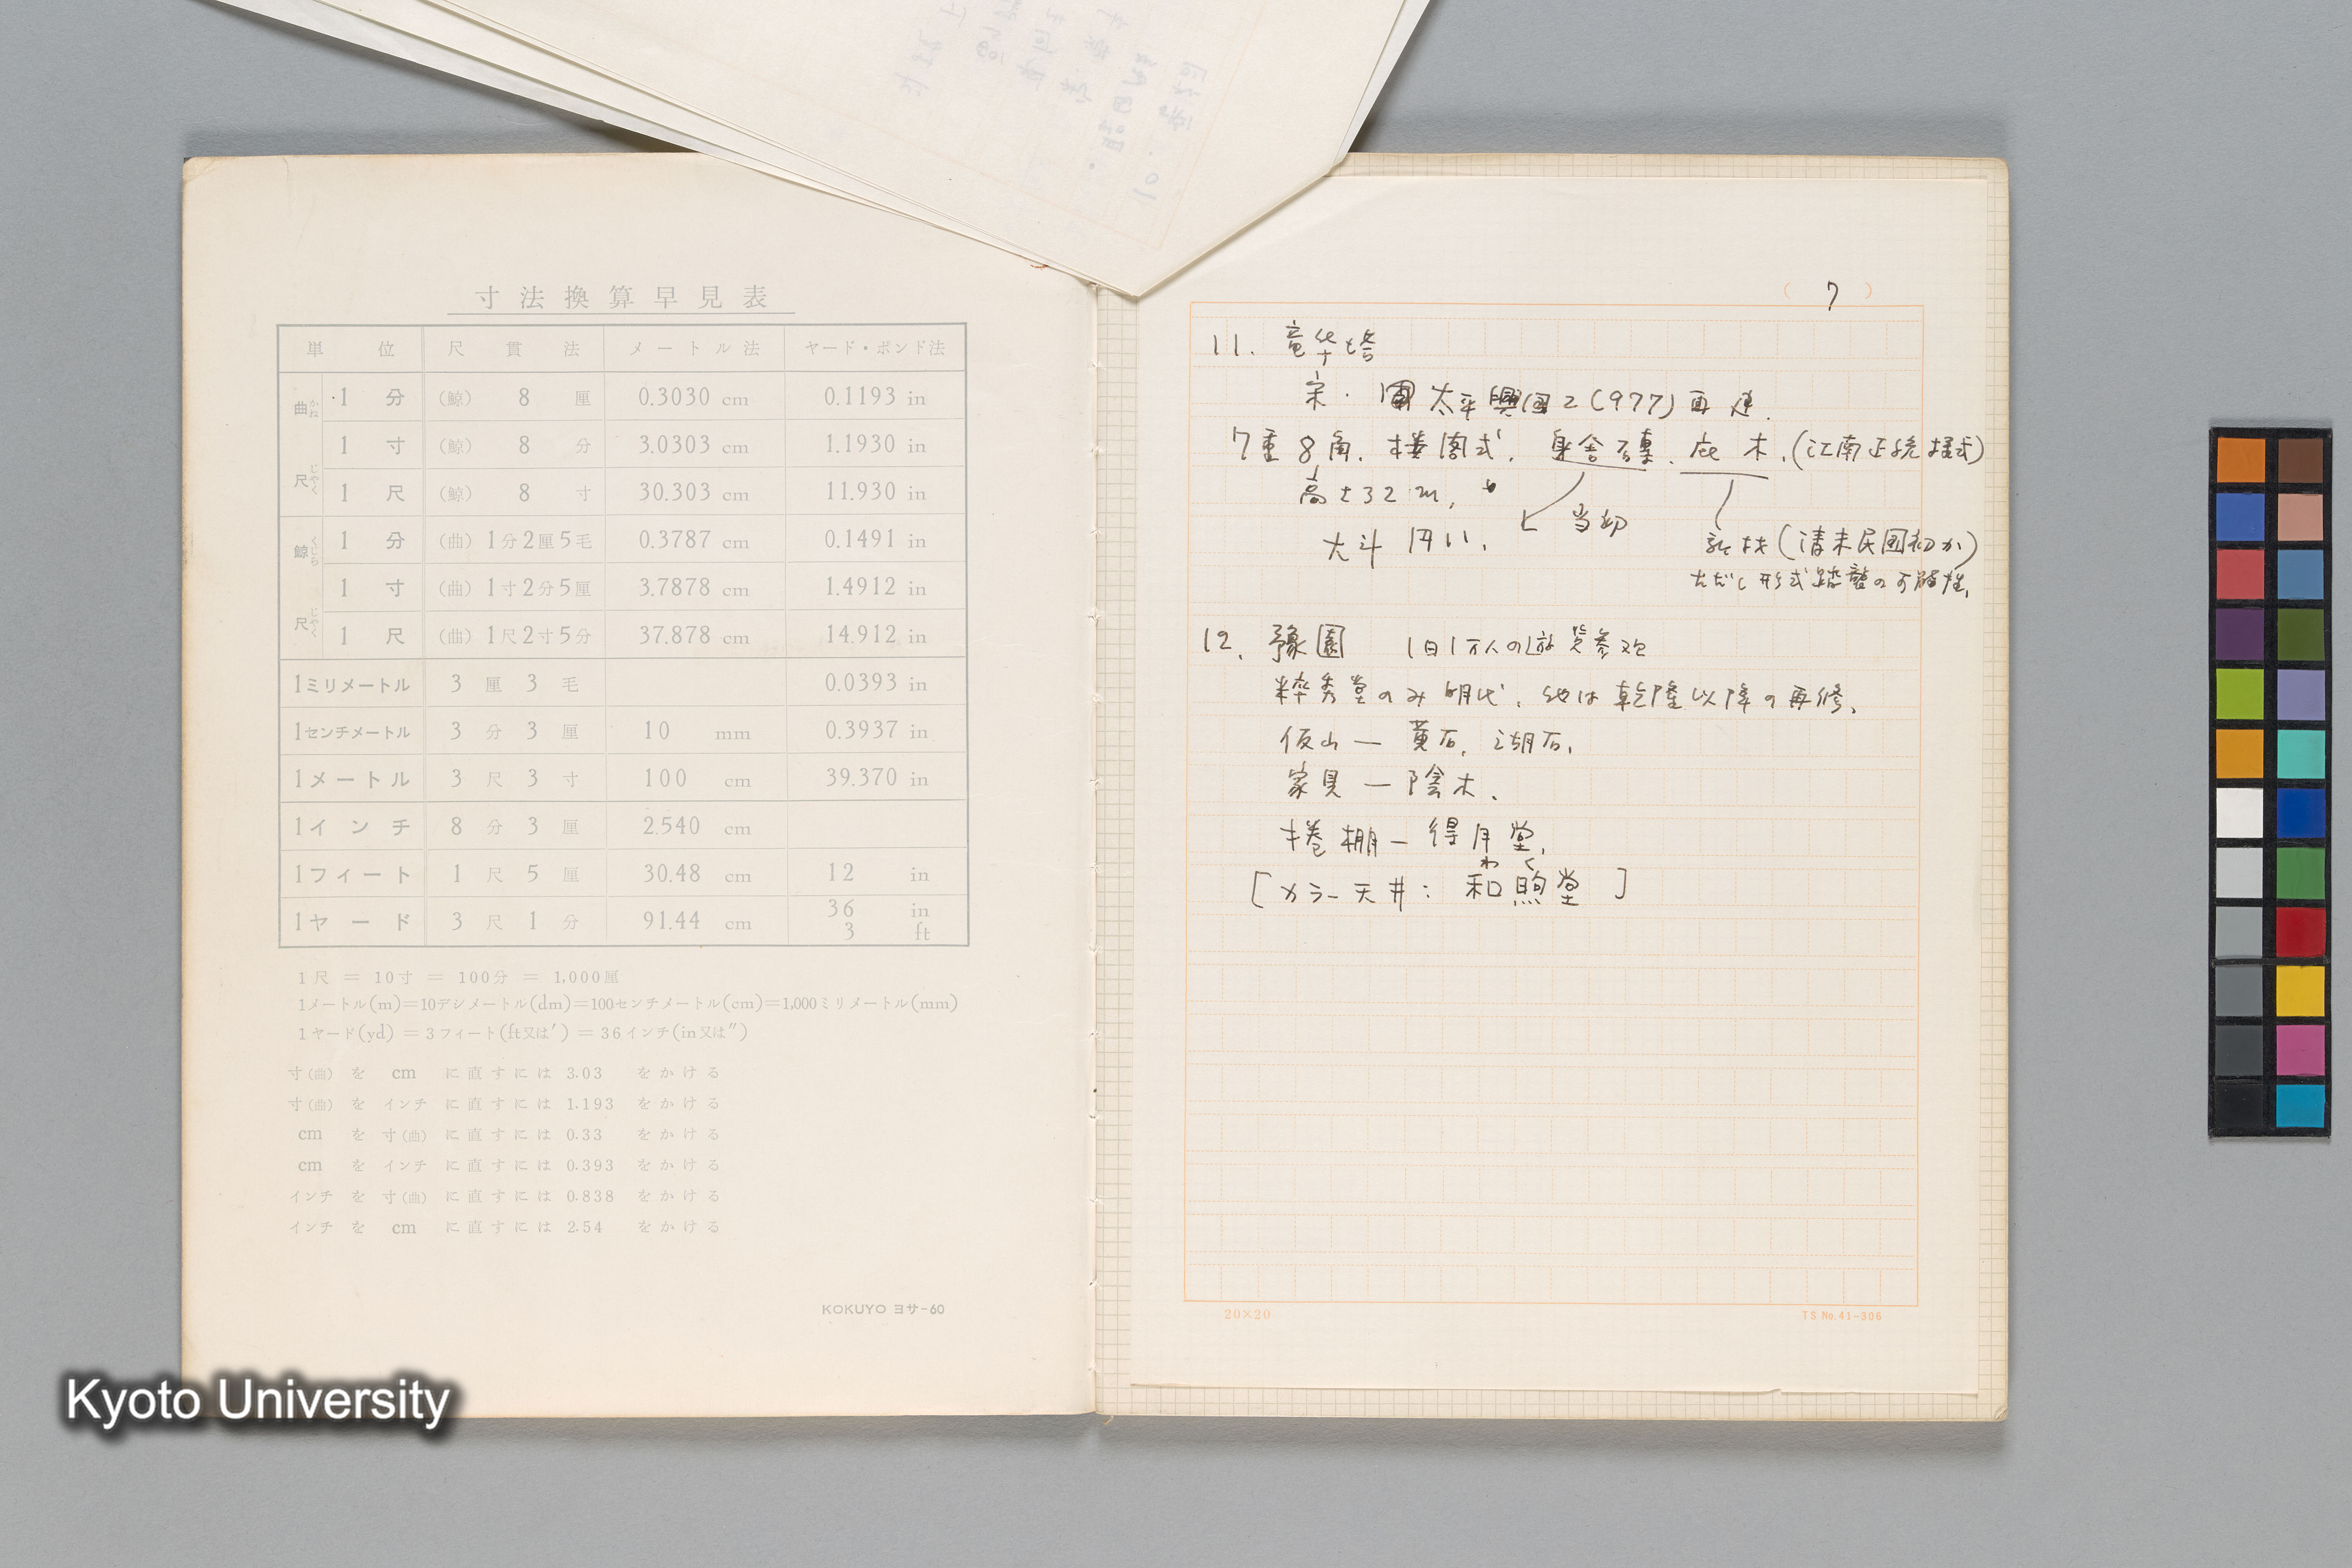 寸法換算早見表
単位 尺貫法 メートル法 ヤード・ポンド法
曲尺 かねじゃく
1分 (鯨) 8厘 0.3030 cm 0.1193 in
1寸 (鯨) 8分 3.0303 cm 1.1930 in
1尺 (鯨) 8寸 30.303 cm 11.930 in
鯨尺 くじらじゃく
1分 (曲) 1分2厘5毛 0.3787 cm 0.1491 in
1寸 (曲) 1寸2分5厘 3.7878 cm 1.4912 in
1尺 (曲) 1尺2寸5分 37.878 cm 14.912 in
1ミリメートル 3厘3毛 0.0393 in
1センチメートル 3分3厘 10 mm 0.3937 in
1メートル 3尺3寸 100 cm 39.370 in
1インチ 8分3厘 2.540 cm
1フィート 1尺5厘 30.48 cm 12 in
1ヤード 3尺1分 91.44 cm 36 in 3 ft
1尺 = 10寸 = 100分 = 1,000厘
1メートル(m)=10デシメートル(dm)=100センチメートル(cm)=1,000ミリメートル(mm)
1ヤード(yd) = 3フィート(ft又は′) = 36インチ(in又は″)
寸(曲)を cm に直すには 3.03 をかける
寸(曲)を インチ に直すには 1.193 をかける
cm を 寸(曲) に直すには 0.33 をかける
cm を インチ に直すには 0.393 をかける
インチ を 寸(曲) に直すには 0.838 をかける
インチ を cm に直すには 2.54 をかける
KOKUYO ヨサ-60
(7)
11. 竜华塔
宋. 太平興国2(977)再建.
7重8角. 楼閣式. 身舎磚、庇木.(江南正統様式)
高さ32m.
大斗 円い. 当初
新材(清末民国初か)
ただし形式踏襲の可能性.
12. 豫園 1日1万人の遊覧参観
粹秀堂のみ明代. 他は乾隆以降の再修.
仮山 — 黄石, 湖石.
家具 — 陰木.
捲棚 — 得月堂.
わく
[カラー天井: 和煦堂 ]
20×20
TS No.41-306
Kyoto University